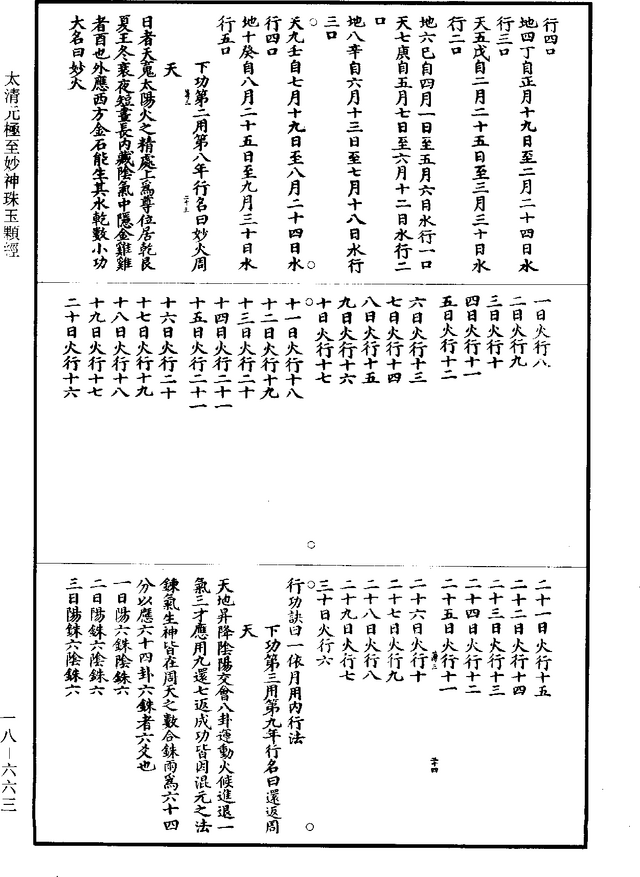 行四口
地四丁自正月十九日至二月二十四日水
行三口
天五戊自二月二十五日至三月三十日水
行二口
地六巳自四月一日至五月六日水行一口
天七庚自五月七日至六月十二日水行二
口
地八辛自六月十三日至七月十八日水行
三口
天九壬自七月十九日至八月二十四日水
行四口
地十癸自八月二十五日至九月三十日水
行五口
下功第二用第八年行名曰妙火周
天
日者天䰟太陽火之精處上爲尊位居乾艮
夏王冬衰夜短晝長内藏陰氣中隱金雞雞
者酉也外應西方金石能生其水乾數小功
大名曰妙火
一日火行八
二日火行九
三日火行十
四日火行十一
五日火行十二
六日火行十三
七日火行十四
八日火行十五
九日火行十六
十日火行十七
十一日火行十八
十二日火行十九
十三日火行二十
十四日火行二十一
十五日火行二十一
十六日火行二十
十七日火行十九
十八日火行十八
十九日火行十七
二十日火行十六
二十一日火行十五
二十二日火行十四
二十三日火行十三
二十四日火行十二
二十五日火行十一
二十六日火行十
二十七日火行九
二十八日火行八
二十九日火行七
三十日火行六
行功訣曰一依月用内行法
下功第三用第九年行名曰還返周
天
天地昇降陰陽交會八卦運動火候進退一
氣三才應用九還七返成功皆因混元之法
鍊氣生神皆在周天之數合銖兩爲六十四
分以應六十四卦六銖者六爻也
一日陽六銖陰銖六
二日陽銖六陰銖六
三日陽銖六陰銖六
太清元極至妙神珠玉顆經
一八—六六三